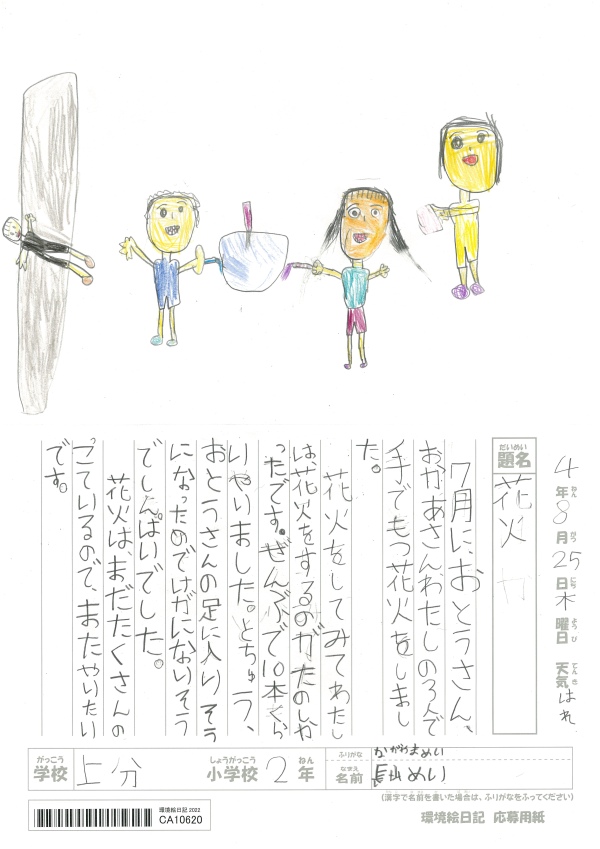 4年8月25日木曜日 天気はれ
ねん がつ にち ようび てんき
だいめい
題名
花火
7月に、おとうさん、
おかあさんわたしの3人で
手でもつ花火をしまし
た。
花火をしてみてわたし
は、花火をするのが、たのしか
ったです。ぜんぶで10本くら
いやいました。とちゅう、
おとうさんの足に入りそう
になったのでけがにならいそう
でしんぱいでした。
花火は、まだたくさんの
こているので、またやいたい
です。
がっこう
学校
上分
しょうがっこう
小学校
2
ねん
年
ふりがな
かがわまめい
なまえ
名前
めい
(漢字で名前を書いた場合は、ふりがなをふってください)
環境絵日記 応募用紙
環境絵日記 2022
CA10620